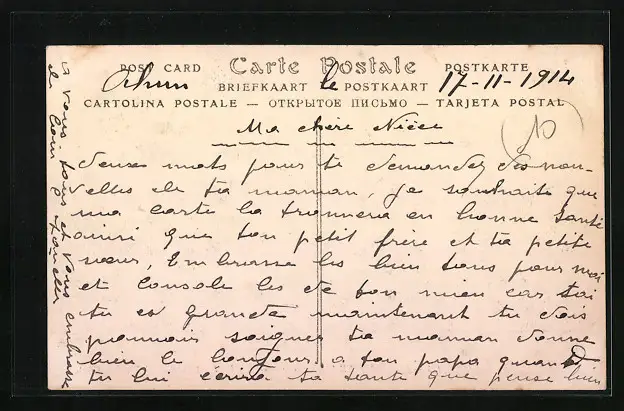 POST CARD Carte Postale POSTKARTE
Ahun BRIEFKAART le POSTKAART 17-11-1914
CARTOLINA POSTALE — ОТКРЫТОЕ ПИСЬМО — TARJETA POSTAL
Ma chère Nièce
10
deux mots pour te demandez des nou-
velles de ta maman, je souhaite que
ma carte la trouvera en bonne santé
ainsi que ton petit frère et ta petite
sœur, Embrasse les bien tous pour moi
et console les de ton mieu car toi
tu es grande maintenant tu dois
pouvoir soigner ta maman donne
bien le bonjour a ton papa quand
tu lui écrira ta tante que pense bien
a vous tous et vous embrasse
de loin